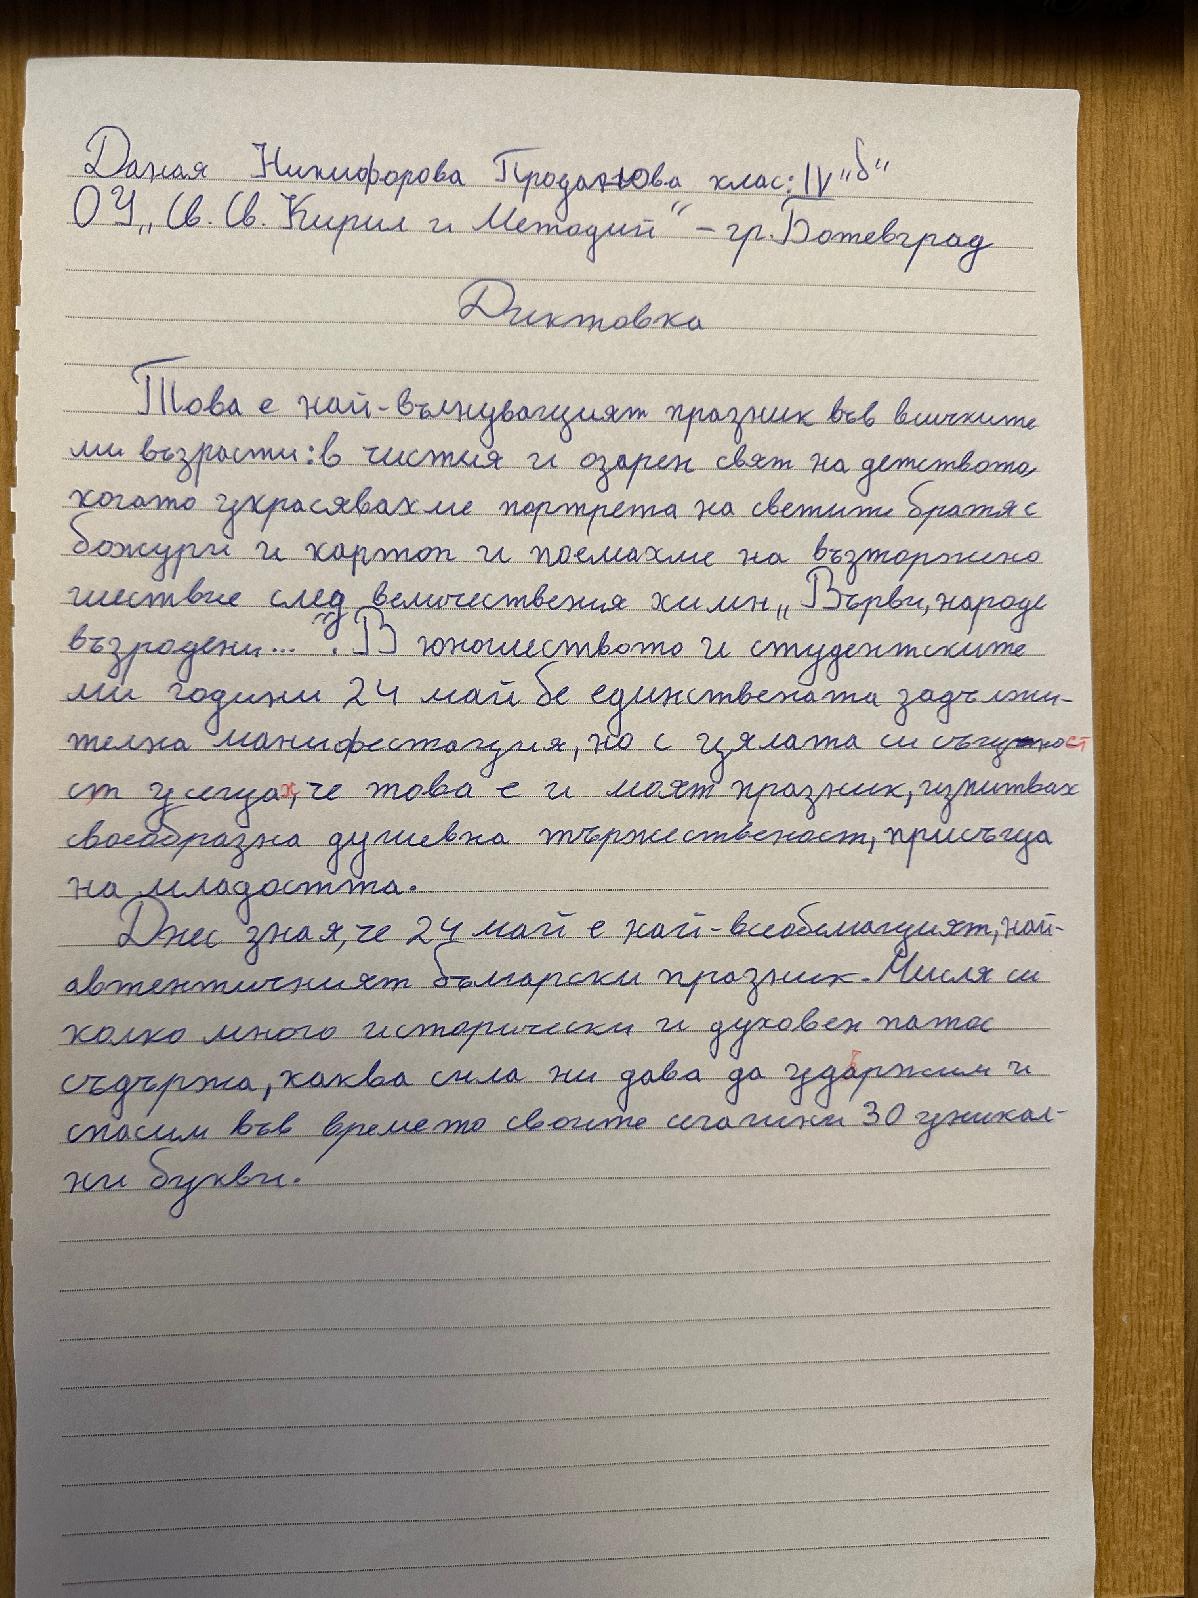 Даная Никифорова Проданова клас: IV "б"
ОУ „Св. Св. Кирил и Методий“ – гр. Ботевград
Диктовка
Това е най-вълнуващият празник във всичките
ми възрасти: в чистия и озарен свят на детството,
когато украсявахме портрета на светите братя с
божури и картоп и поемахме на възторжено
шествие след величествения химн „Върви, народе
възродени...“. В юношеството и студентските
ми години 24 май бе единствената задължи-
телна манифестация, но с цялата си същност
ст усещах, че това е и моят празник, изпитвах
своеобразна душевна тържественост, присъща
на младостта.
Днес зная, че 24 май е най-всеобемащият, най-
автентичният български празник. Мисля си
колко много исторически и духовен патос
съдържа, каква сила ни дава да удържим и
спасим във времето своите сегашни 30 уникал-
ни букви.